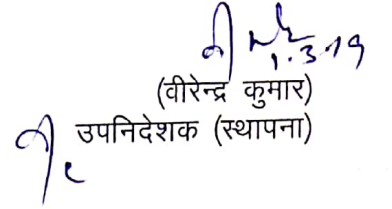 1.3.19
(वीरेन्द्र कुमार)
उपनिदेशक (स्थापना)